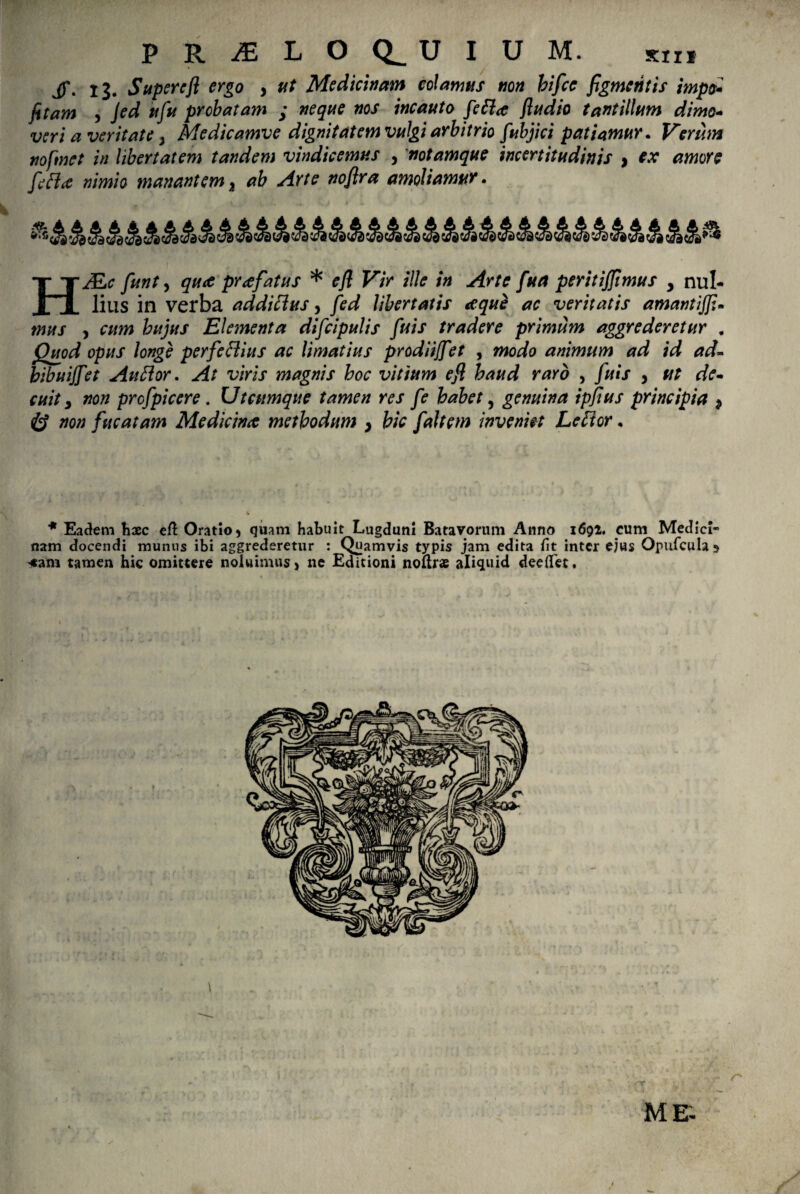 PRÆLOQUIUM. XIII
§. 13. Supereſt ergo , ut Medicinam colamus non hiſce figmentis impo-
ſitam , ſed uſu probatam ; neque nos incauto ſectæ ſtudio tantillum dimo-
veri a veritate , Medicamve dignitatem vulgi arbitrio ſubjici patiamur. Verùm
noſmet in libertatem tandem vindicemus , notamque incertitudinis , ex amore
ſectæ nimio manantem , ab Arte noſtra amoliamur.
HÆc ſunt, quæ præfatus * eſt Vir ille in Arte ſua peritiſſimus , nul-
lius in verba addictus, ſed libertatis æquè ac veritatis amantiſſi-
mus , cum hujus Elementa diſcipulis ſuis tradere primùm aggrederetur .
Quod opus longè perfectius ac limatius prodiiſſet , modo animum ad id ad-
hibuiſſet Auctor. At viris magnis hoc vitium eſt haud rarò , ſuis , ut de-
cuit, non proſpicere . Utcumque tamen res ſe habet, genuina ipſius principia ,
& non fucatam Medicinæ methodum , hic ſaltem inveniet Lector .
* Eadem hæc eſt Oratio, quam habuit Lugduni Batavorum Anno 1692. cum Medici-
nam docendi munus ibi aggrederetur : Quamvis typis jam edita ſit inter ejus Opuſcula ,
eam tamen hic omittere noluimus, ne Editioni noſtræ aliquid deeſſet.
ME-